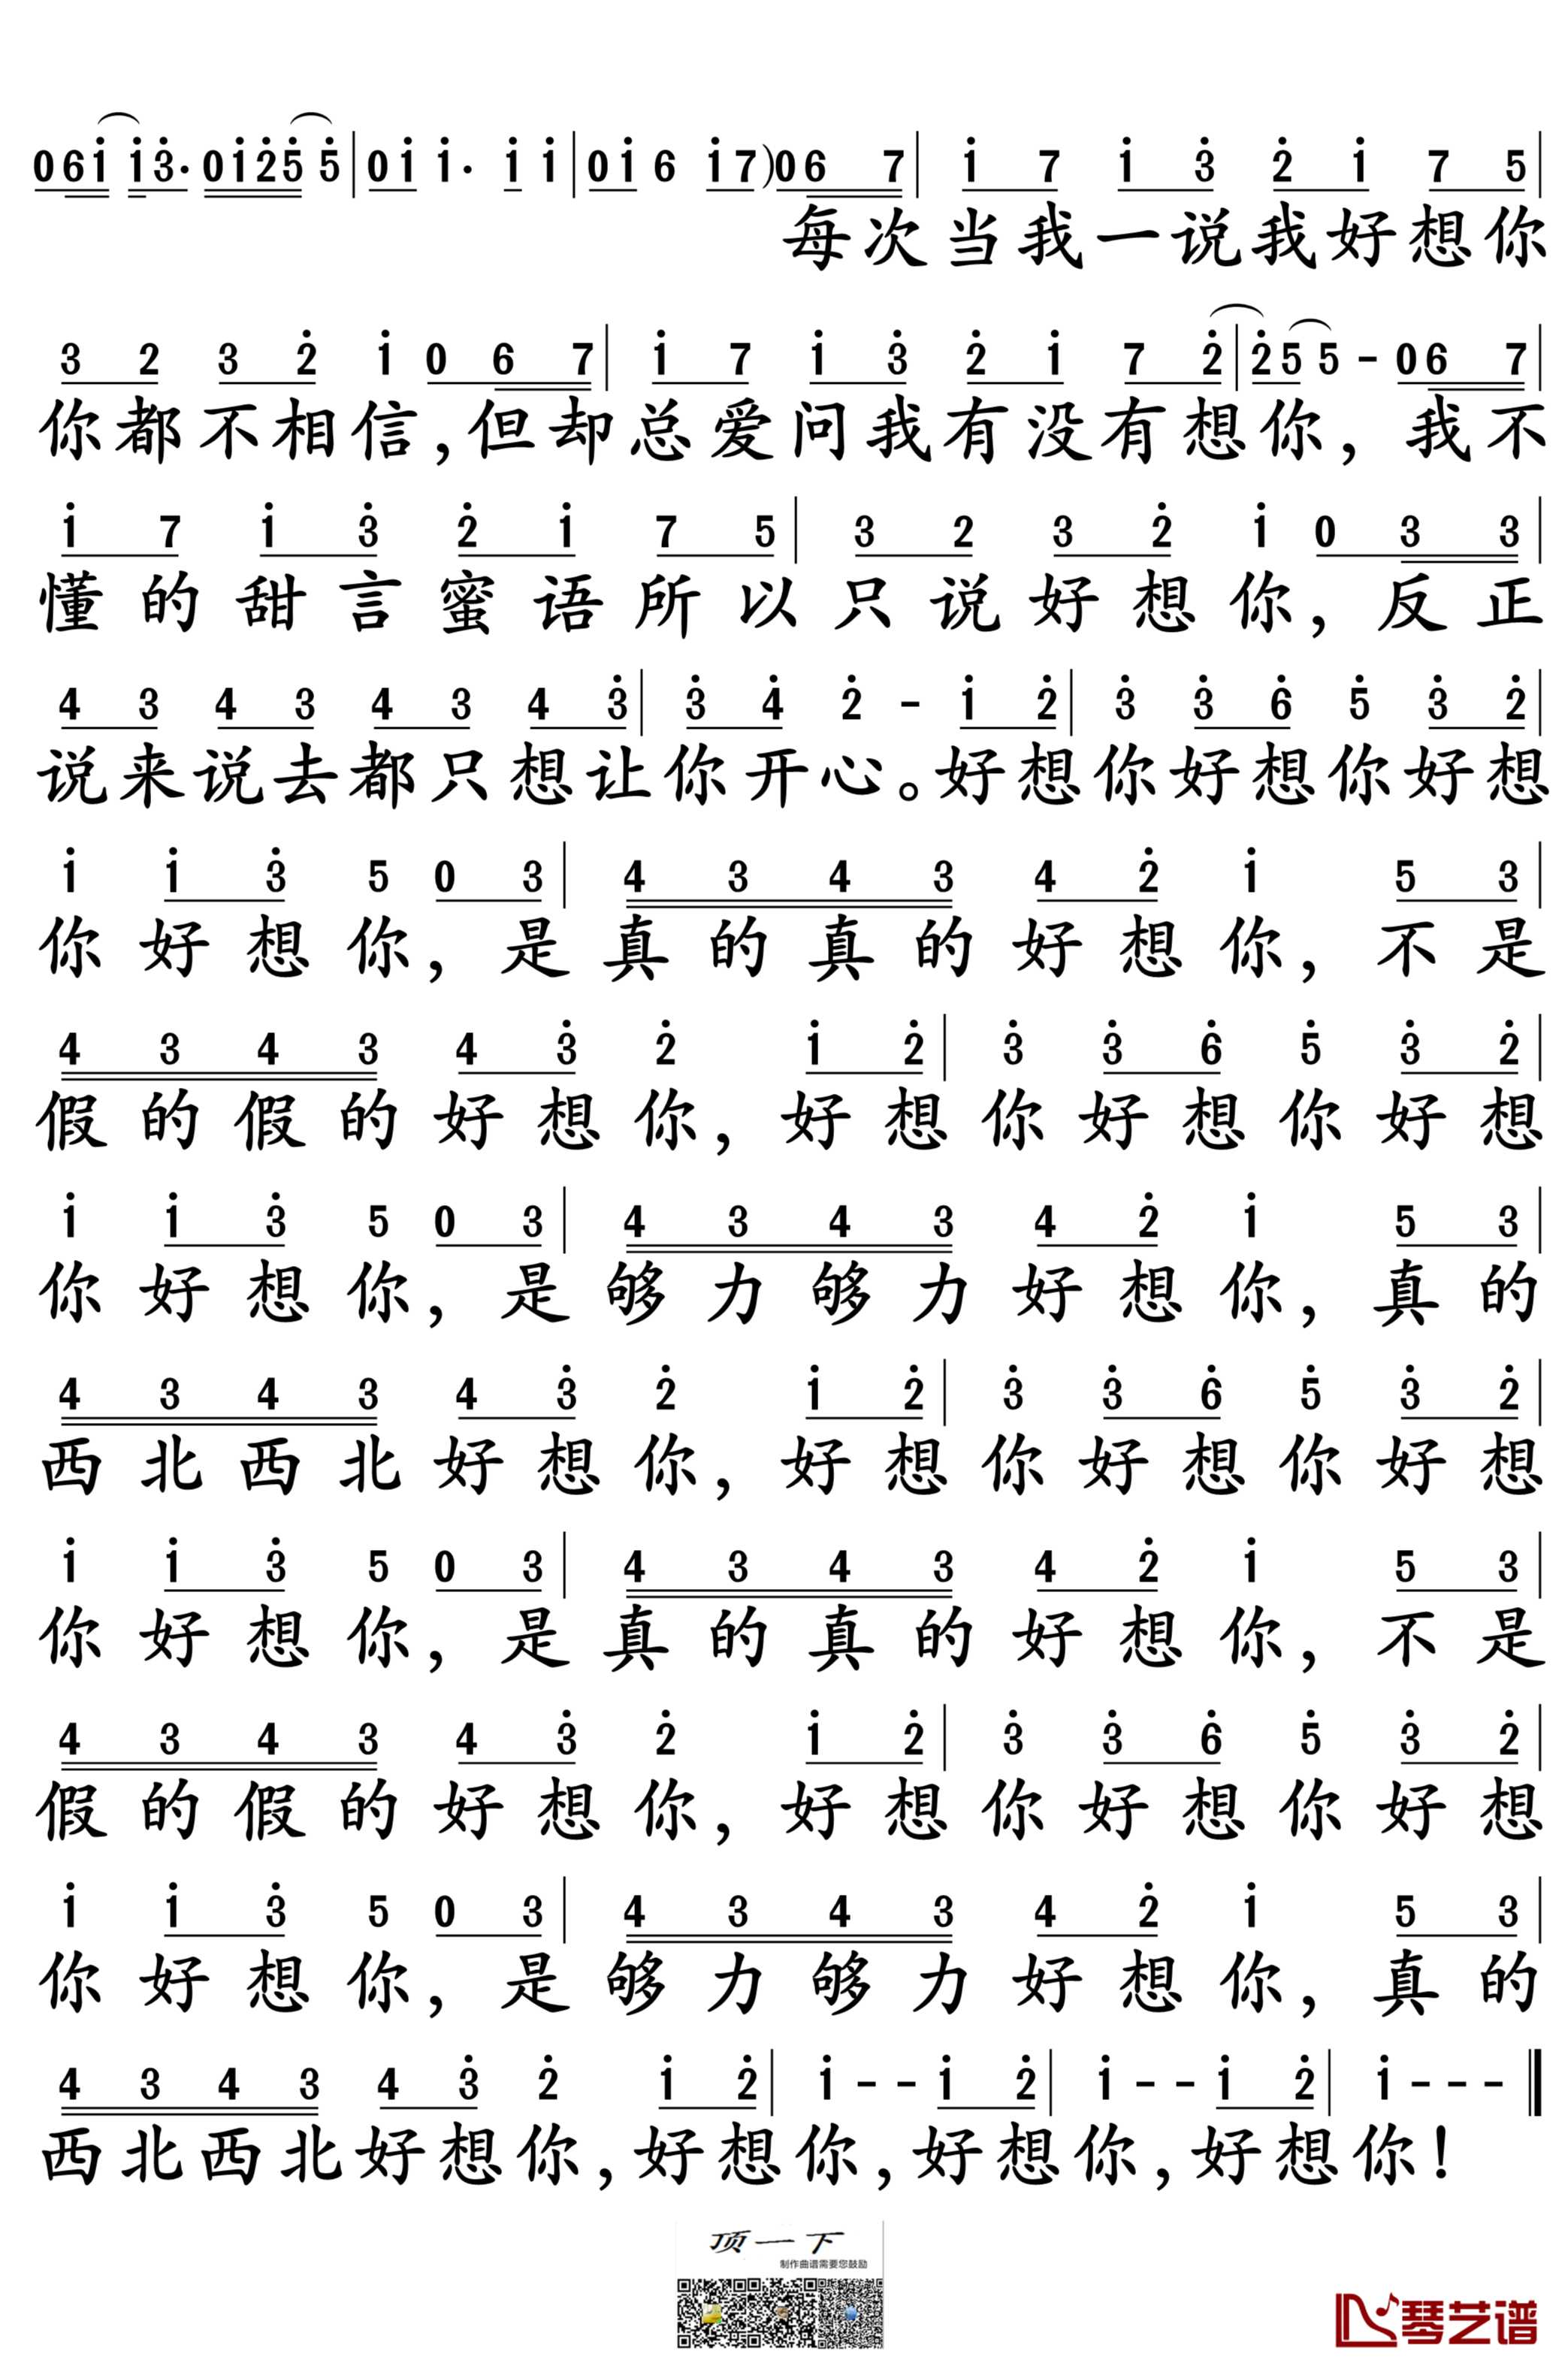 0 6 1̇ 1̇ 3̇· 0 1̇ 2̇ 5̇ 5̇ | 0 1̇ 1̇· 1̇ 1̇ | 0 1̇ 6 1̇ 7 ) 0 6 7 | 1̇ 7 1̇ 3̇ 2̇ 1̇ 7 5 |
每次当我一说我好想你
3 2 3 2̇ 1̇ 0 6 7 | 1̇ 7 1̇ 3̇ 2̇ 1̇ 7 2̇ | 2̇ 5 5 - 0 6 7 |
你都不相信,但却总爱问我有没有想你,我不
1̇ 7 1̇ 3̇ 2̇ 1̇ 7 5 | 3 2 3 2̇ 1̇ 0 3 3 |
懂的甜言蜜语所以只说好想你,反正
4 3 4 3 4 3 4 3̇ | 3̇ 4̇ 2̇ - 1̇ 2̇ | 3̇ 3̇ 6̇ 5̇ 3̇ 2̇ |
说来说去都只想让你开心。好想你好想你好想
1̇ 1̇ 3̇ 5 0 3 | 4 3 4 3 4 2̇ 1̇ 5 3 |
你好想你,是真的真的好想你,不是
4 3 4 3 4 3̇ 2̇ 1̇ 2̇ | 3̇ 3̇ 6̇ 5̇ 3̇ 2̇ |
假的假的好想你,好想你好想你好想
1̇ 1̇ 3̇ 5 0 3 | 4 3 4 3 4 2̇ 1̇ 5 3 |
你好想你,是够力够力好想你,真的
4 3 4 3 4 3̇ 2̇ 1̇ 2̇ | 3̇ 3̇ 6̇ 5̇ 3̇ 2̇ |
西北西北好想你,好想你好想你好想
1̇ 1̇ 3̇ 5 0 3 | 4 3 4 3 4 2̇ 1̇ 5 3 |
你好想你,是真的真的好想你,不是
4 3 4 3 4 3̇ 2̇ 1̇ 2̇ | 3̇ 3̇ 6̇ 5̇ 3̇ 2̇ |
假的假的好想你,好想你好想你好想
1̇ 1̇ 3̇ 5 0 3 | 4 3 4 3 4 2̇ 1̇ 5 3 |
你好想你,是够力够力好想你,真的
4 3 4 3 4 3̇ 2̇ 1̇ 2̇ | 1̇ - - 1̇ 2̇ | 1̇ - - 1̇ 2̇ | 1̇ - - - ‖
西北西北好想你,好想你,好想你,好想你!
顶一下
制作曲谱需要您鼓励
琴艺谱